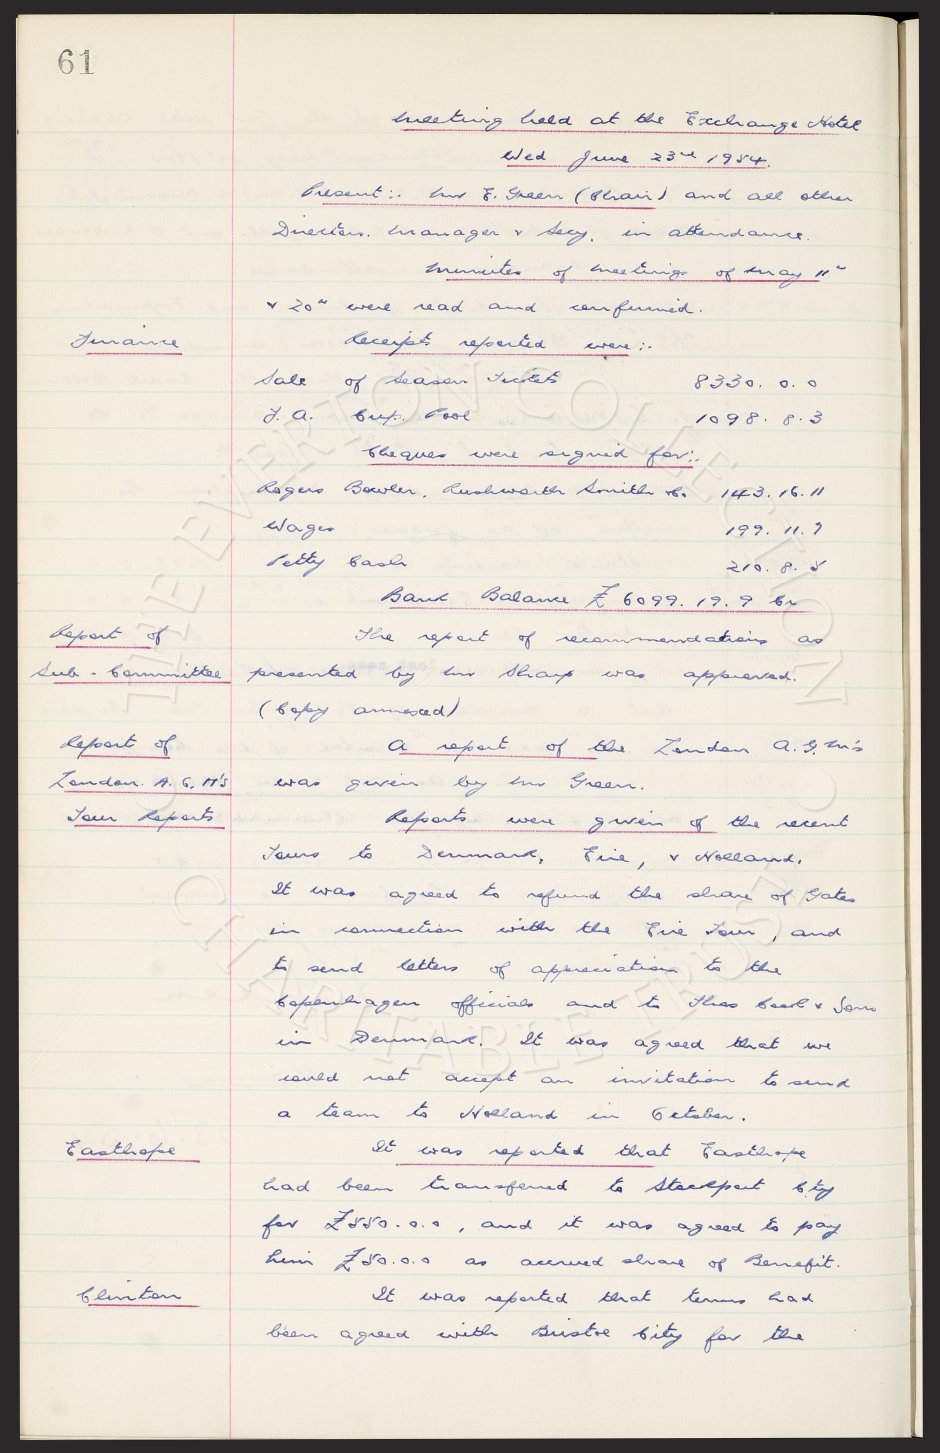 61
Meeting held at the Exchange Hotel
Wed June 23rd 1954.
Present:- Mr E. Green (Chair) and all other
Directors. Manager & Secy. in attendance.
Minutes of Meetings of May 11th
& 20th were read and confirmed.
Finance
Receipts reported were:-
Sale of Season Tickets 8330. 0. 0
F. A. Cup. Pool 1098. 8. 3
Cheques were signed for:-
Rogers Bowler, Rushworth Smith & Co 143. 16. 11
Wages 199. 11. 9
Petty Cash 210. 8. 5
Bank Balance £ 6099. 19. 9 Cr
Report of
Sub-Committee
The report of recommendations as
presented by Mr Sharp was approved.
(Copy annexed)
Report of
London. A. G. M's
A report of the London A. G. M's
was given by Mr Green.
Tour Reports
Reports were given of the recent
Tours to Denmark, Eire, & Holland.
It was agreed to refund the share of Gates
in connection with the Eire Tour, and
to send letters of appreciation to the
Copenhagen officials and to Thos Cook & Sons
in Denmark. It was agreed that we
could not accept an invitation to send
a team to Holland in October.
Easthope
It was reported that Easthope
had been transferred to Stockport City
for £550.0.0, and it was agreed to pay
him £50.0.0 as accrued share of Benefit.
Clinton
It was reported that terms had
been agreed with Bristol City for the
THE EVERTON COLLECTION
CHARITABLE TRUST